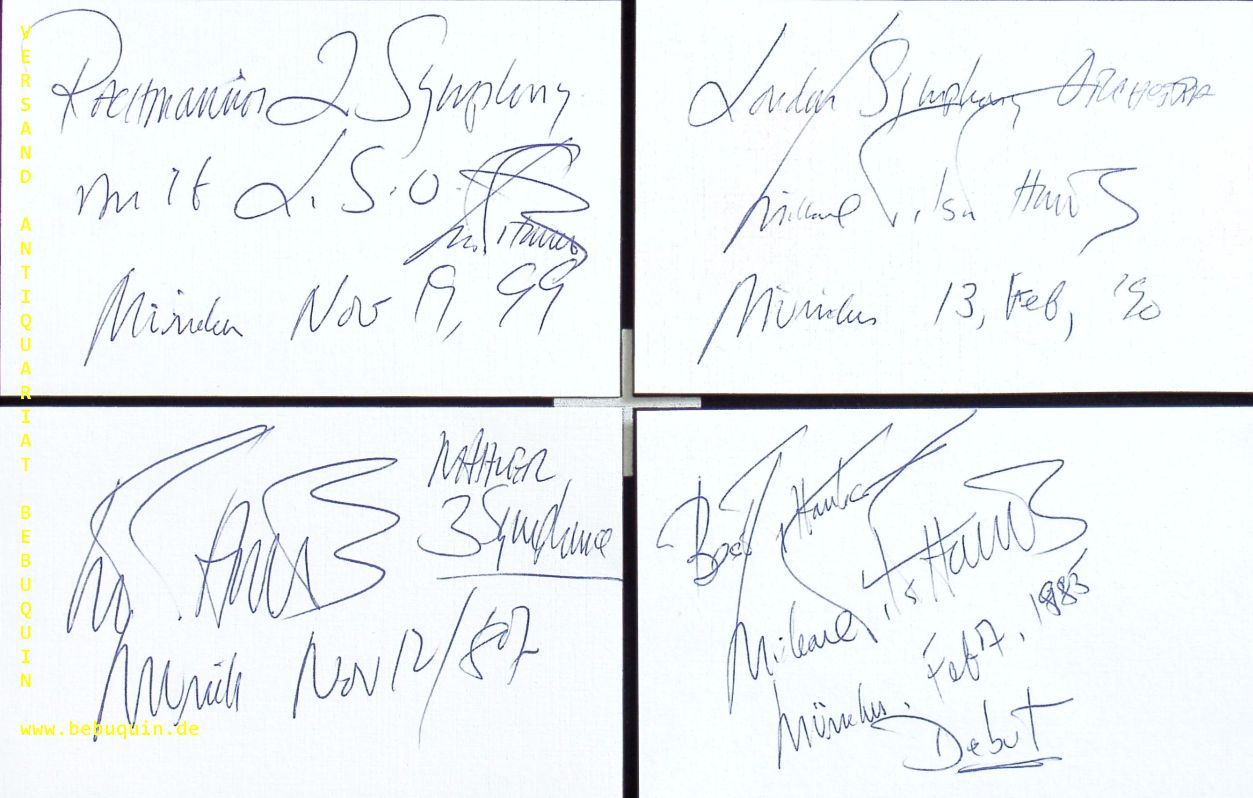 VERSAND ANTIQUARIAT BEBUQUIN
www.bebuquin.de
Rachmaninov 2 Symphony
mit L.S.O.
München Nov 19, 99
London Symphony Orchestra
Michael Tilson Thomas
München 13, Feb, '90
MAHLER
3 Symphonie
Munich Nov 12/87
Best Thanks
Michael Thomas
München. Feb 7, 1985
Debut